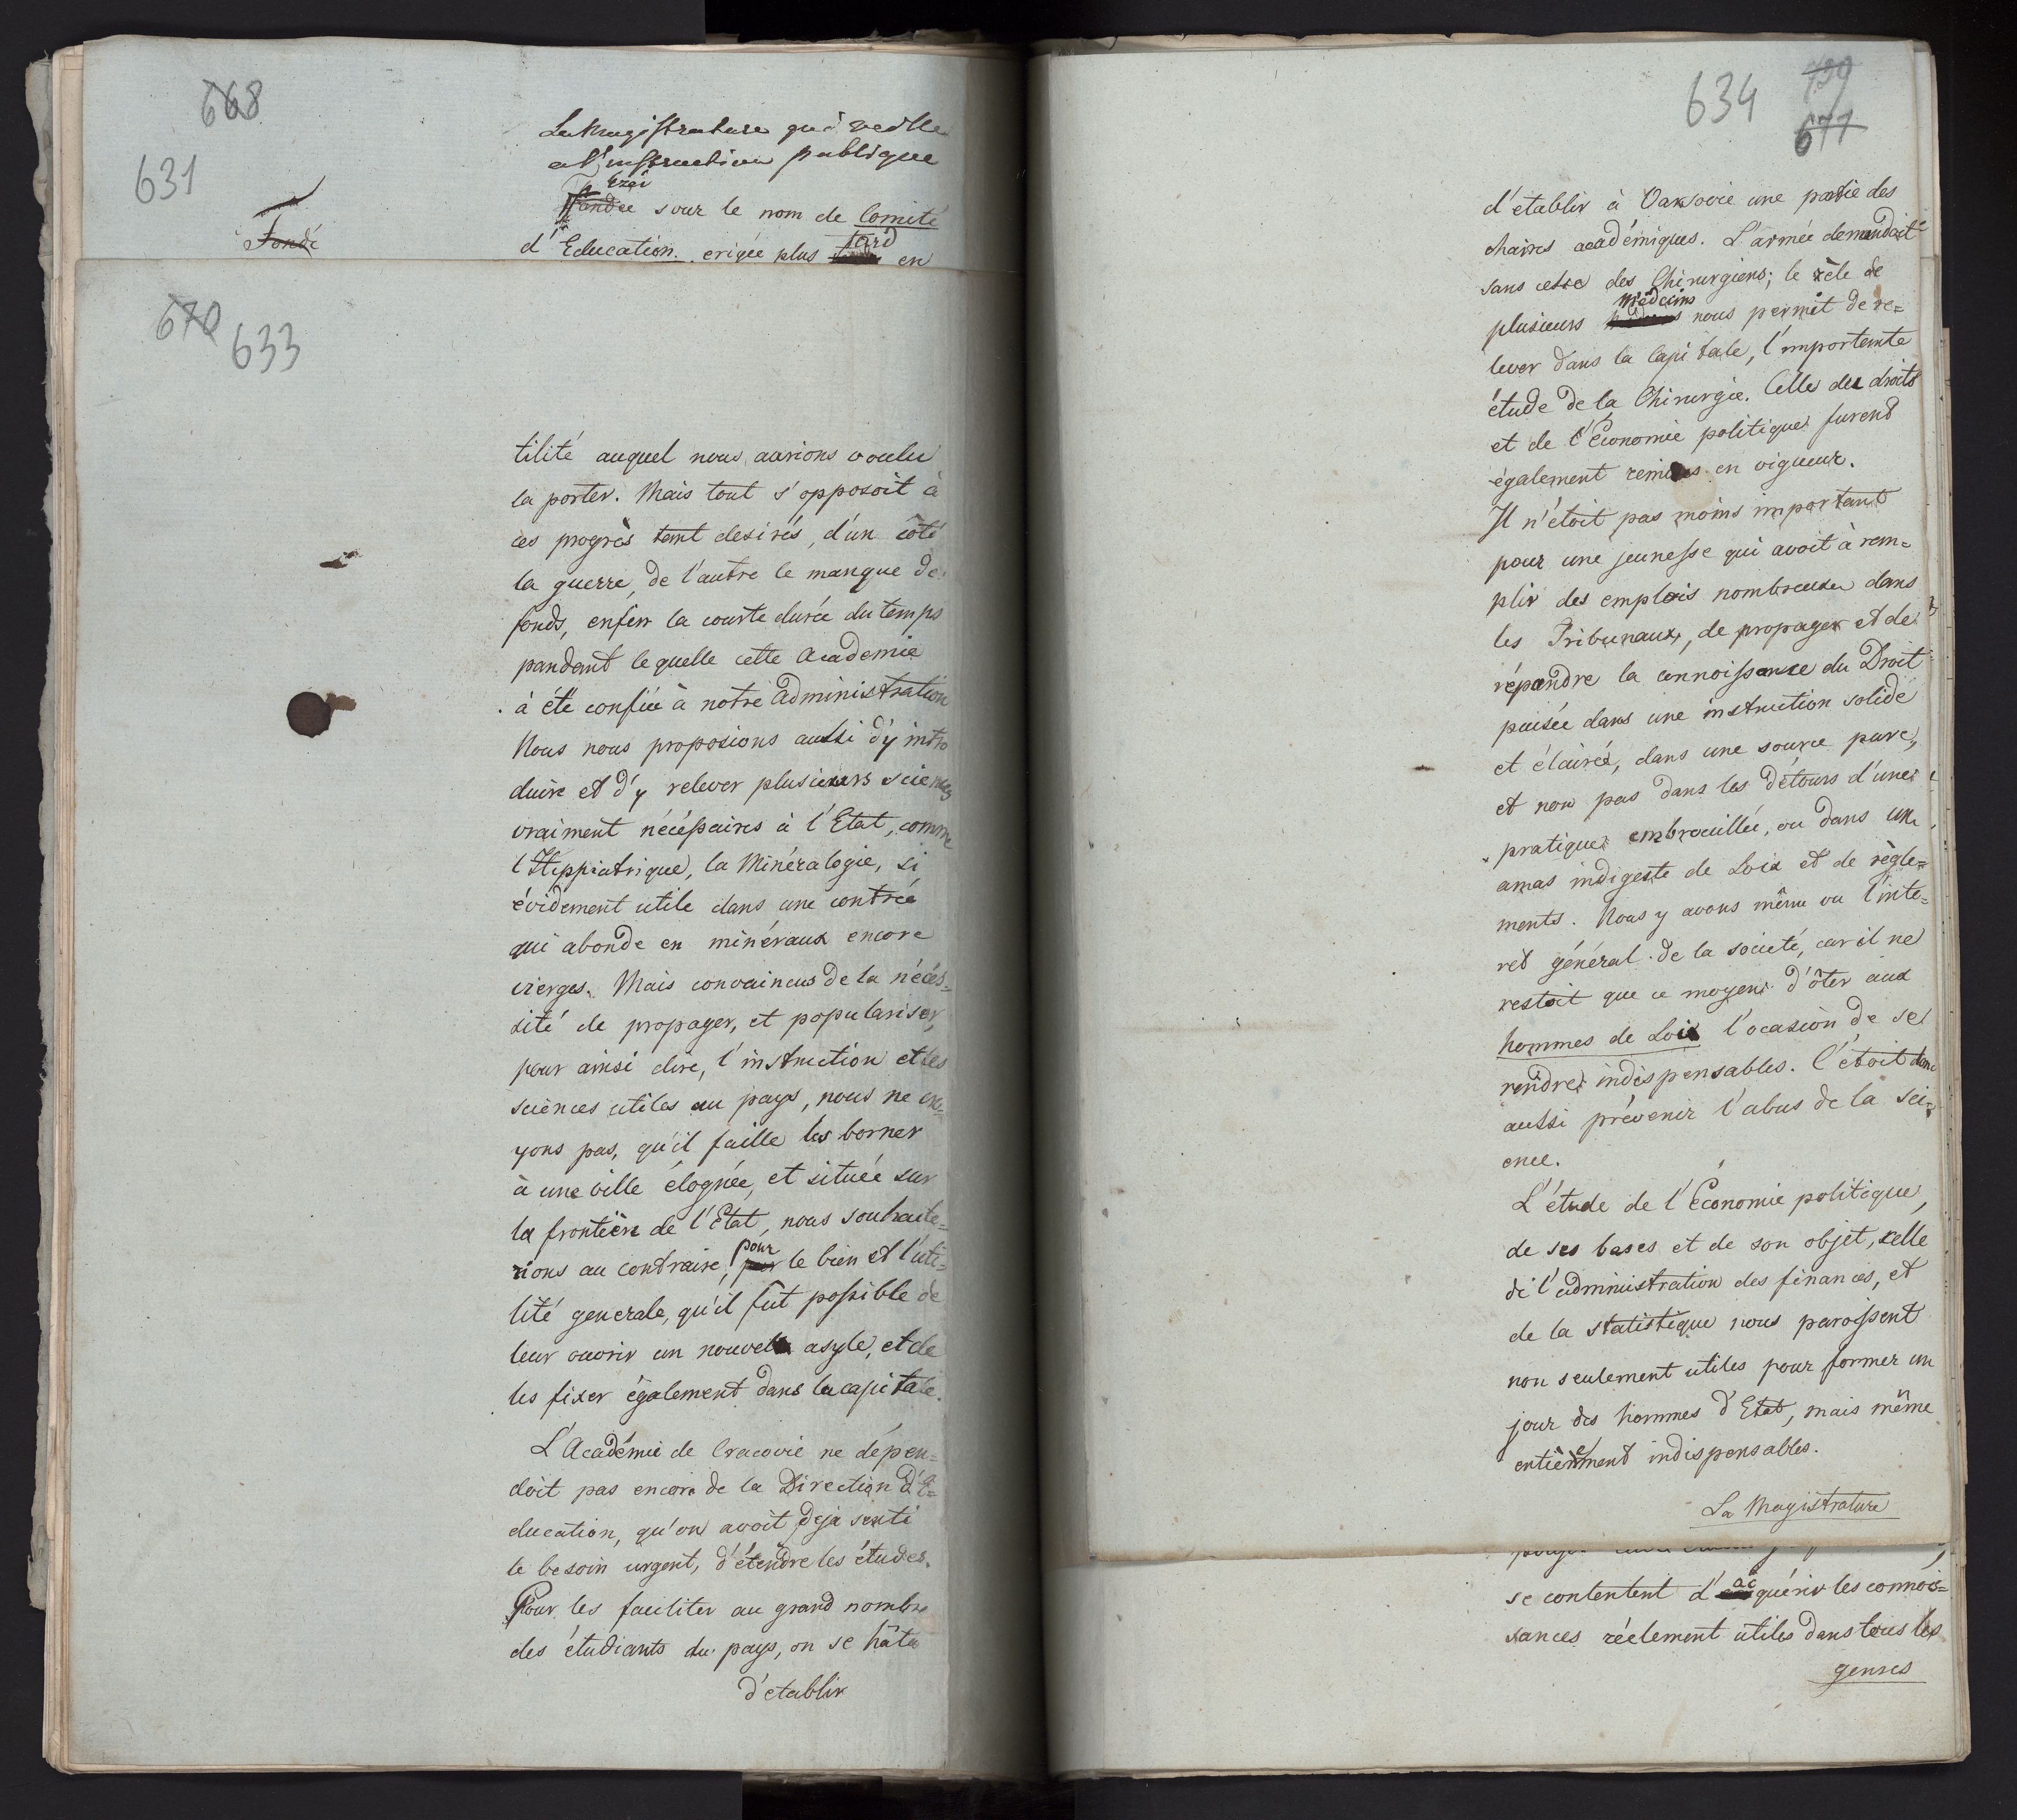 668
631
La Magistrature qui veille
a l'instruction publique
Fondée sour le nom de Comité
Fondé
d'Education. erigée plus tard en
670 633
tilité auquel nous aurions voulu
la porter. Mais tout s'opposoit à
ces progrès tant desirés, d'un côté
la guerre, de l'autre le manque de
fonds, enfin la courte durée du temps
pandant lequelle cette Academie
à été confiée à notre administration
Nous nous proposions aussi d'y intro
duire et d'y relever plusieurs sciences
vraiment nécéssaires à l'Etat, comme
l'Hippiatrique, la Minéralogie, si
évidement utile dans une contrée
qui abonde en minéraux encore
vierges. Mais convaincus de la nécés=
sité de propager, et populariser,
pour ainsi dire, l'instruction et les
sciences utiles au pays, nous ne cro=
yons pas, qu'il faille les borner
à une ville élognée, et située sur
la frontière de l'Etat, nous souhaite=
rions au contraire, pour le bien et l'uti=
lité generale, qu'il fût possible de
leur ouvrir un nouvel asyle, et de
les fixer également dans la capitale.
L'Académie de Cracovie ne dépen=
doit pas encore de la Direction d'E=
ducation, qu'on avoit deja senti
le besoin urgent, d'étendre les études.
Pour les faciliter au grand nombre
des étudiants du pays, on se hâta
d'etablir
634 677
d'etablir à Varsovie une partie des
chaires académiques. L'armée demandait
sans cesse des Chirurgiens; le zèle de
plusieurs médecins nous permit de re=
lever dans la Capitale, l'importante
étude de la Chirurgie. Celle des droits
et de l'Economie politique furent
également remises en vigueur.
Il n'étoit pas moins important
pour une jeunesse qui avoit à rem=
plir des emplois nombreux dans
les Tribunaux, de propager et de
répandre la connoissance du Droit
puisée dans une instruction solide
et élairée, dans une source pure,
et non pas dans les détours d'une
pratique embrouillée, ou dans un
amas indigeste de Loix et de règle=
ments. Nous y avons même vu l'inte=
ret général de la societé, car il ne
restoit que ce moyen d'ôter aux
hommes de Loix l'ocasion de se
rendre indispensables. C'étoit donc
aussi prévenir l'abus de la sci=
ence.
L'étude de l'Économie politique,
de ses bases et de son objet, celle
de l'administration des finances, et
de la statistique nous paroissent
non seulement utiles pour former un
jour des hommes d'Etat, mais même
entièrement indispensables.
La Magistrature
se contentent d'acquérir les connois=
sances réelement utiles dans tous les
genres